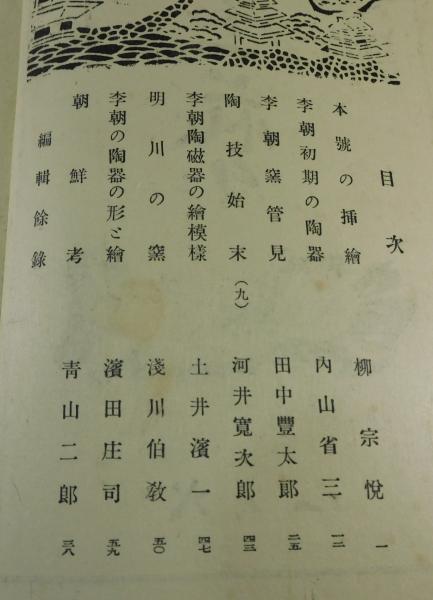 目次
本號の挿繪 柳宗悅 一
李朝初期の陶器 內山省三 一二
李朝窯管見 田中豐太郎 二五
陶技始末(九) 河井寬次郎 四三
李朝陶磁器の繪模樣 土井濱一 四七
明川の窯 淺川伯敎 五〇
李朝の陶器の形と繪 濱田庄司 五九
朝鮮考 靑山二郎 三八
編輯餘錄